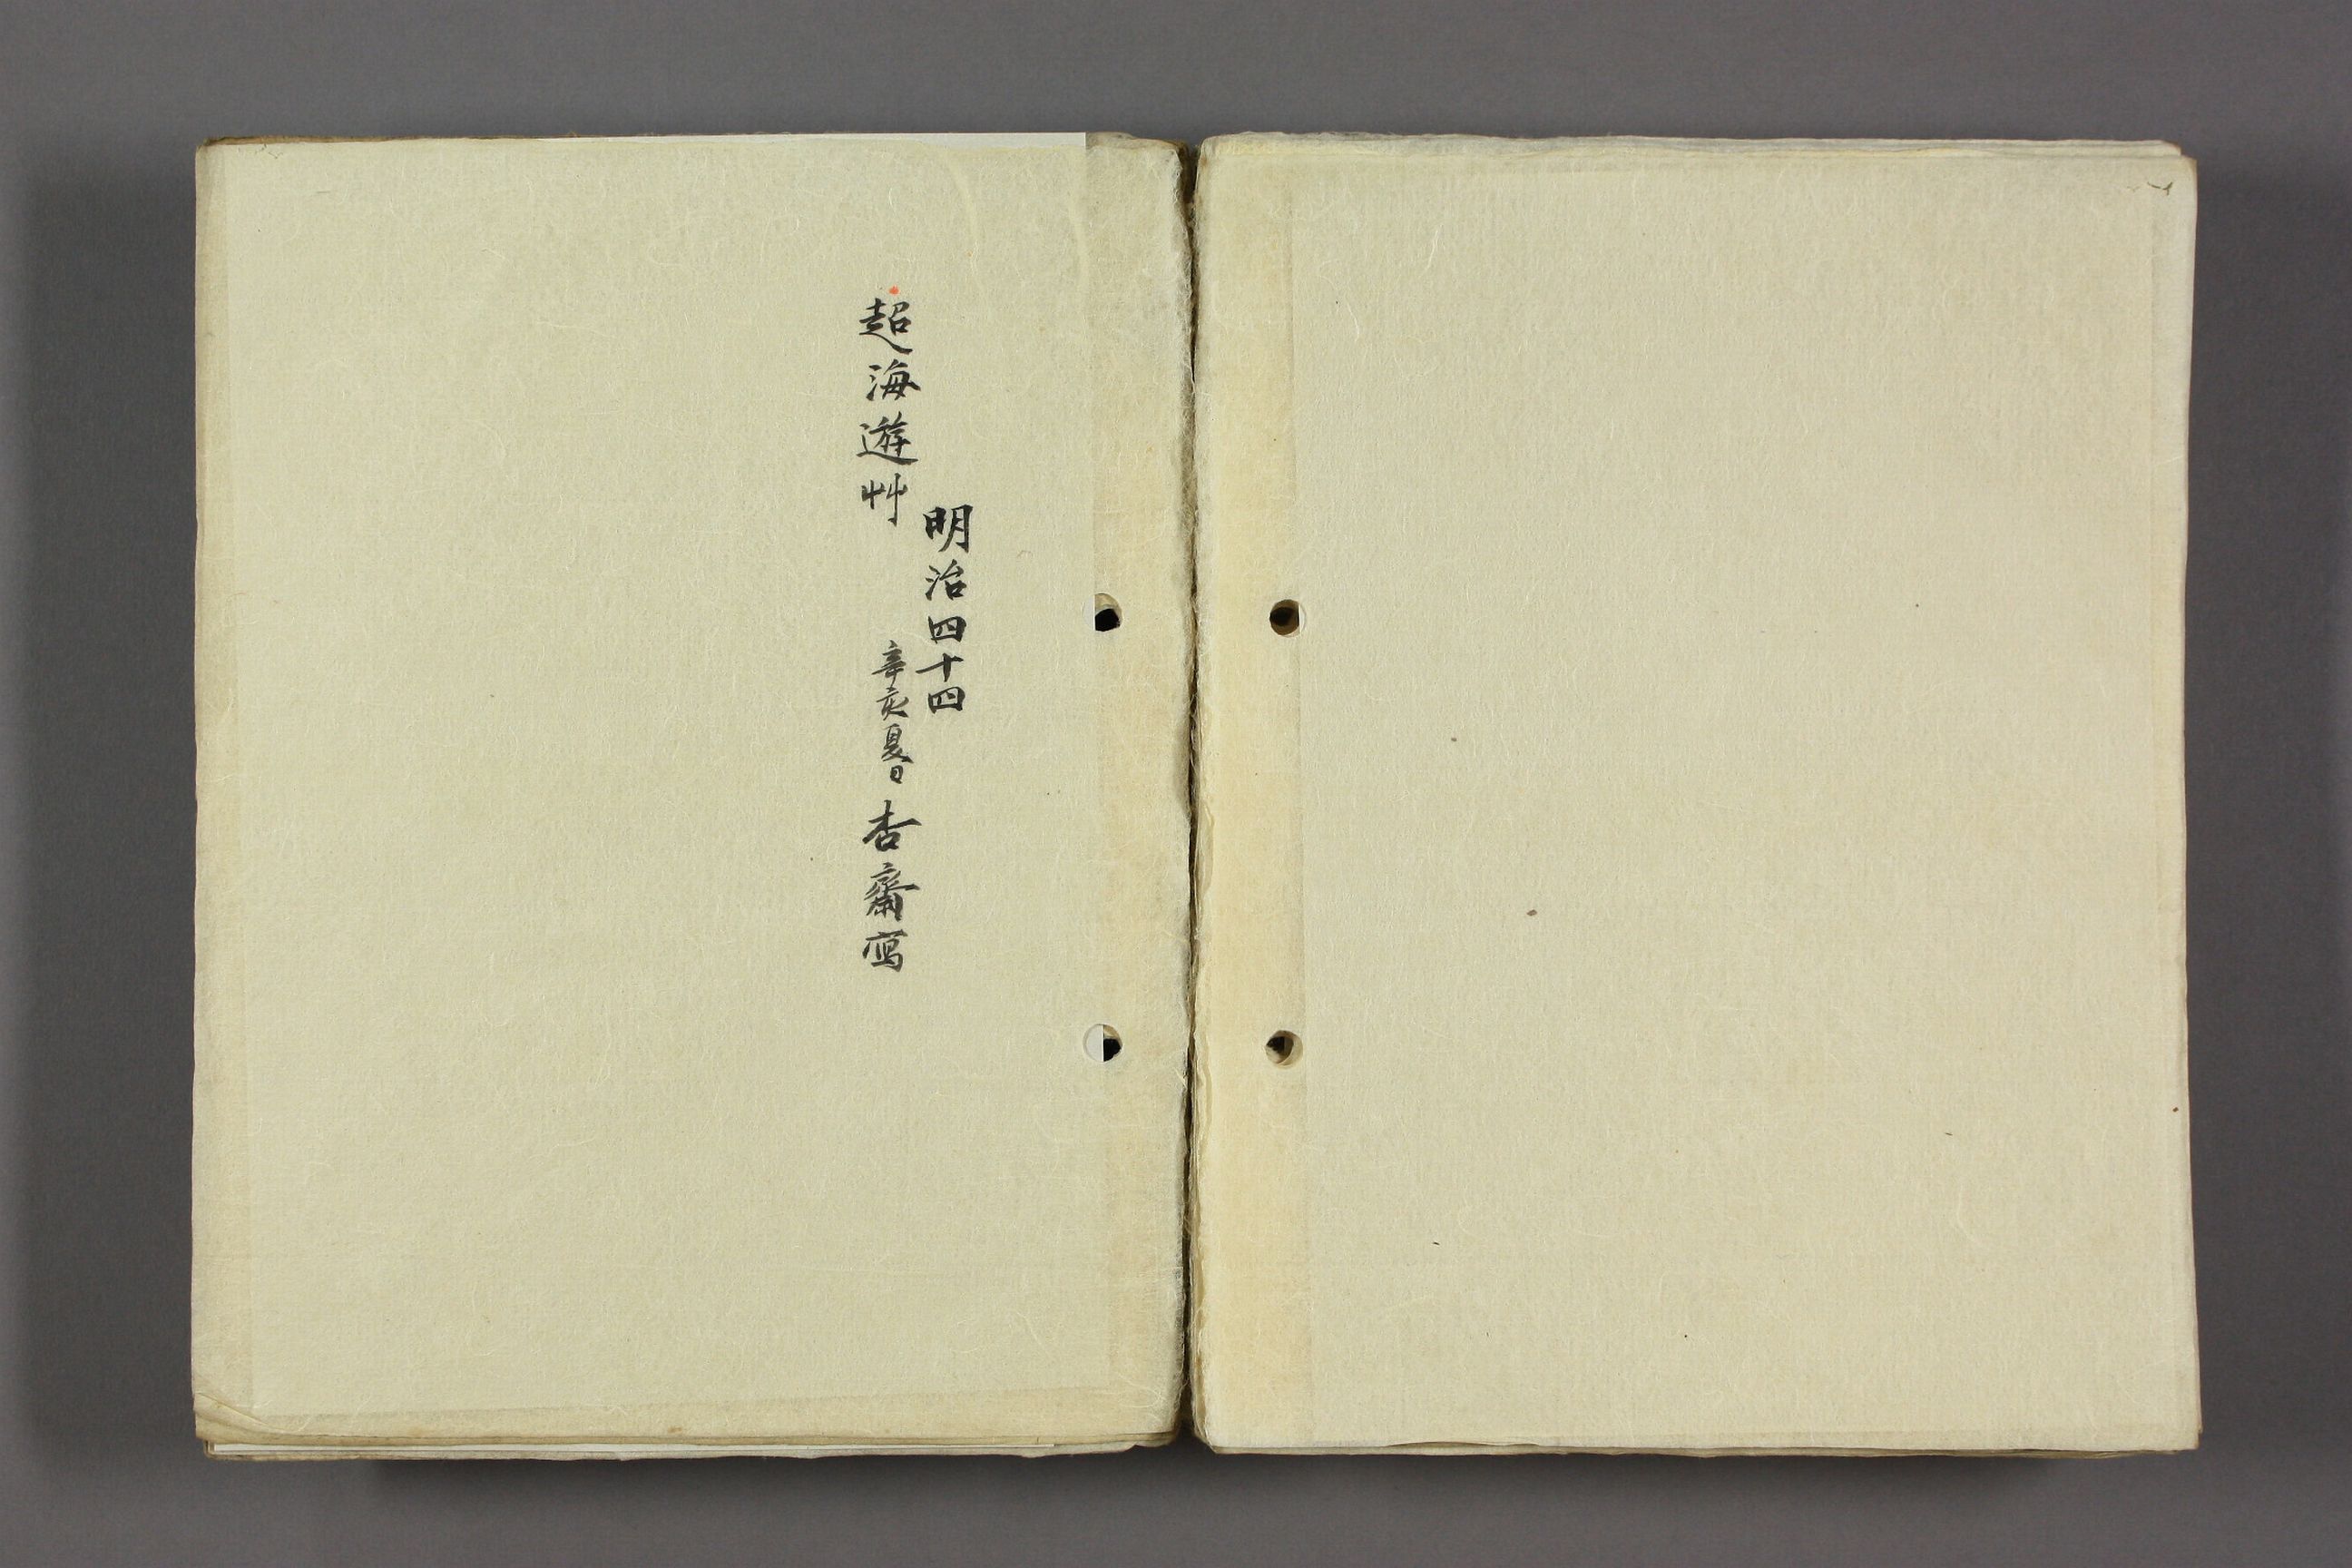 明治四十四
超海遊艸 辛亥夏日 杏齋寫